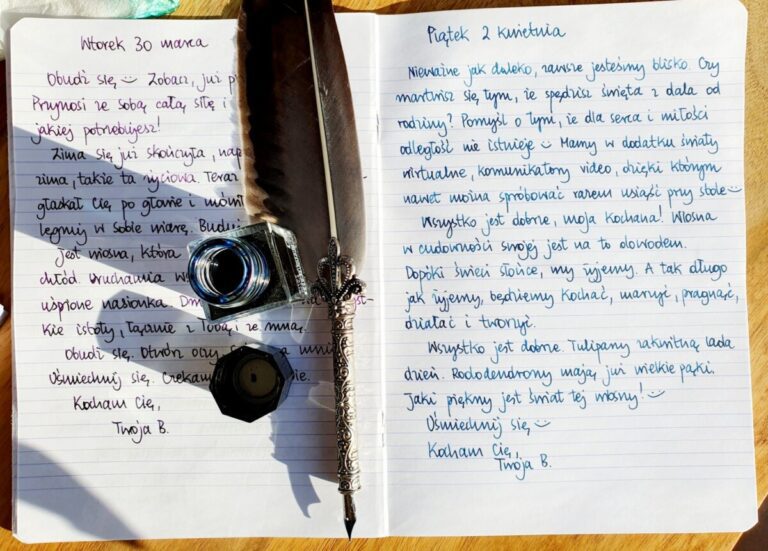 Wtorek 30 marca
Obudź się Zobacz, już
Przynosi ze sobą całą siłę i
jakiej potrzebujesz!
Zima się już skończyła,
zima, także ta życiowa. Teraz
głaskał Cię po głowie i mówił
legnij w Sobie wiarę.
Jest wiosna, która
chłód. Uruchamia
uśpione nasionka.
kie istoty, łącznie z Tobą, ze mną.
Obudź się. Otwórz oczy.
Uśmiechnij się.
Kocham Cię,
Twoja B.
Piątek 2 kwietnia
Nieważne jak daleko, zawsze jesteśmy blisko. Czy
martwisz się tym, że spędzisz święta z dala od
rodziny? Pomyśl o tym, że dla serca i miłości
odległość nie istnieje Mamy w dodatku światy
wirtualne, komunikatory video, dzięki którym
nawet można spróbować razem usiąść przy stole
Wszystko jest dobrze, moja Kochana! Wiosna
w cudowności swojej jest na to dowodem.
Dopóki świeci słońce, my żyjemy. A tak długo
jak żyjemy, będziemy kochać, marzyć, pragnąć,
działać i tworzyć.
Wszystko jest dobrze. Tulipany zakwitną lada
dzień. Rododendrony mają już wielkie pąki.
Jaki piękny jest świat tej wiosny!
Uśmiechnij się
Kocham Cię,
Twoja B.